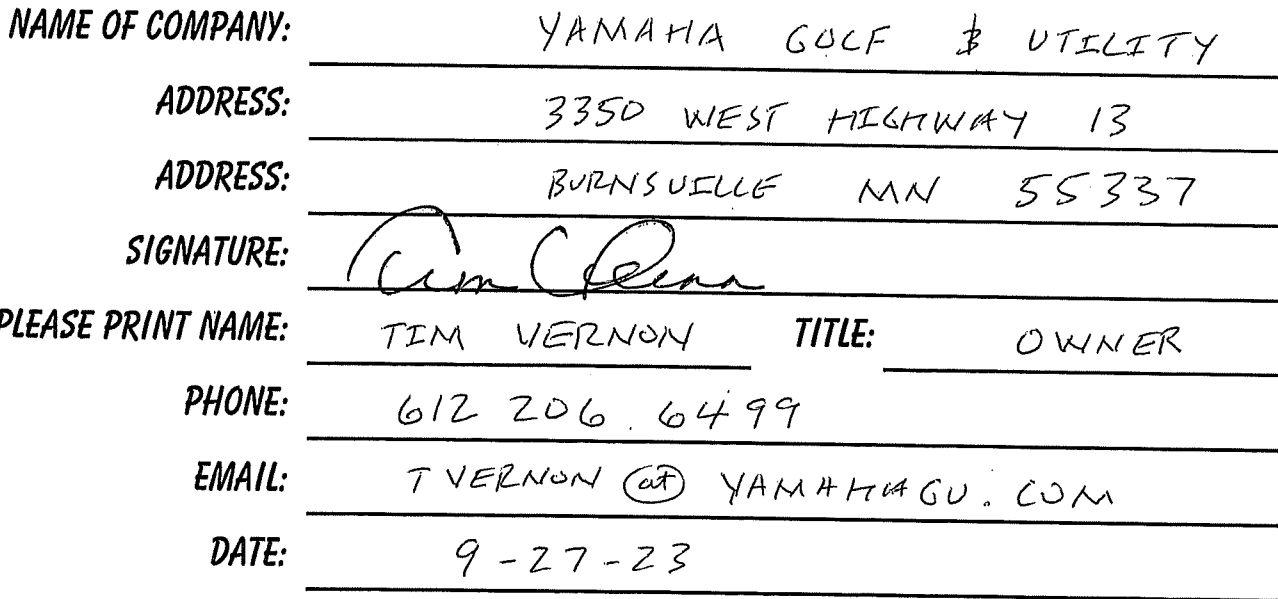 NAME OF COMPANY: YAMAHA GOLF & UTILITY
ADDRESS: 3350 WEST HIGHWAY 13
ADDRESS: BURNSVILLE MN 55337
SIGNATURE: Tim
PLEASE PRINT NAME: TIM VERNON TITLE: OWNER
PHONE: 612 206.6499
EMAIL: TVERNON at YAMAHAGU.COM
DATE: 9-27-23